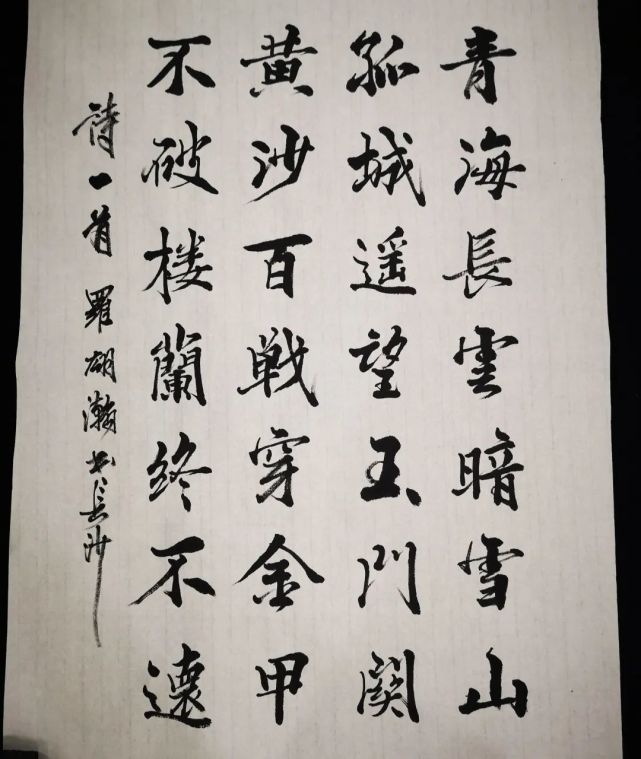 青海長雲暗雪山
孤城遥望玉門関
黄沙百戦穿金甲
不破楼蘭終不還
詩一首 羅胡瀚书長沙